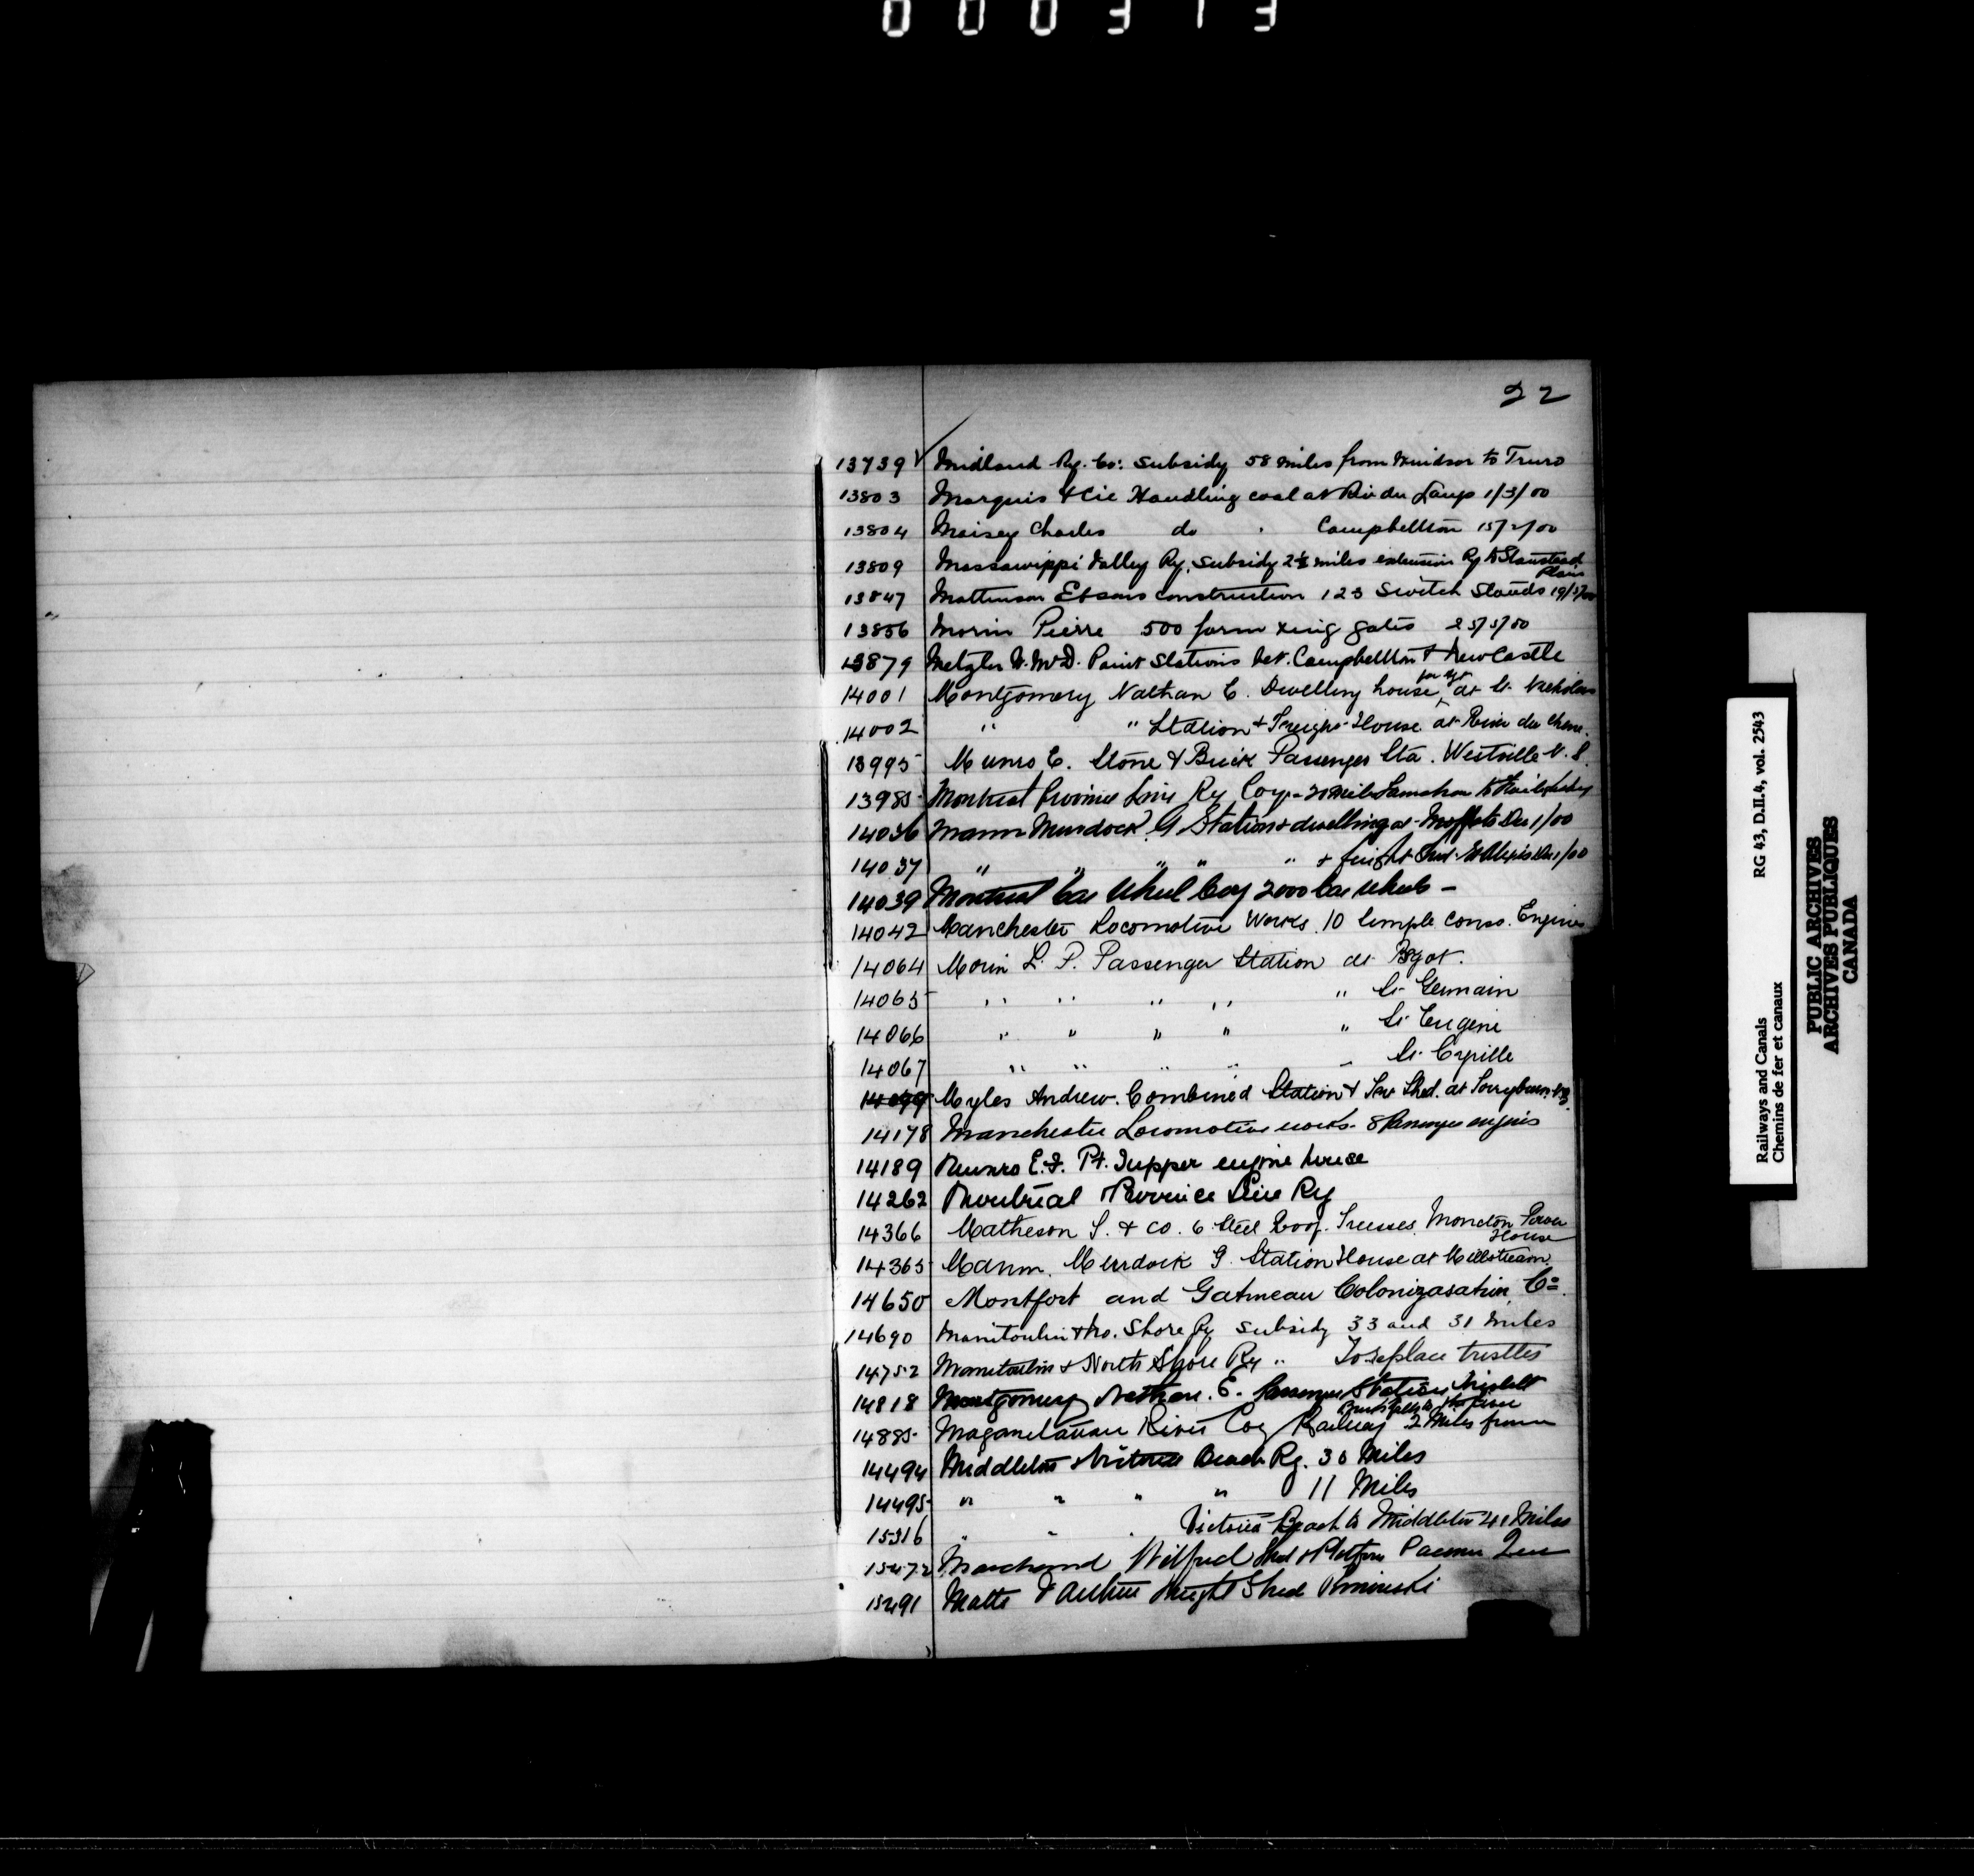 000313
22
13739 Midland Ry. Co: Subsidy 58 miles from Windsor to Truro
13803 Marquis & Cie Handling coal at Riv du Loup 1/3/00
13804 Moisey Charles do Campbellton 15/2/00
13809 Massawippi Valley Ry. Subsidy 2½ miles extension Ry to Stanstead
Plain
13847 Mattinson & Sons construction 123 Switch Stands
13856 Morin Pierre 500 farm xing gates 25/5/00
13879 Metzler W. McD. Paint Stations bet. Campbellton & Newcastle
14001 Montgomery Nathan E. Dwelling house at St. Nicholas
14002 " " Station & Freight House at River du Chene.
13995 Munro E. Stone & Brick Passenger Sta. Westville N.S.
13985 Montreal Province Line Ry Coy
14036 Mann Murdock G Station & dwelling at Moffats Dec 1/00
14037 " " " " " & freight St Alexis Dec 1/00
14039 Montreal Car Wheel Coy 2000 Car Wheels -
14042 Manchester Locomotive Works 10 Simple Conso. Engines
14064 Morin L. P. Passenger Station at Bagot.
14065 " " " " " St. Germain
14066 " " " " " St. Eugene
14067 " " " " " St. Cyrille
14099 Myles Andrew. Combined Station & Shed. at
14178 Manchester Locomotive works 8 Passenger engines
14189 Munro E.F. Pt. Tupper engine house
14262 Montreal & Province Line Ry
14366 Matheson I. & Co. 6 Steel Roof Trusses. Moncton Power
House
14365 Mann. Murdock G. Station House at Millstream.
14650 Montfort and Gatineau Colonizasation Co.
14690 Manitoulin & No. Shore Ry Subsidy 33 and 31 miles
14752 Manitoulin & North Shore Ry " To replace trestles
14818 Montgomery Nathan. E. Passenger Station
14885 Maganetawan River Coy Railway 2 Miles from
14494 Middleton & Victoria Beach Ry. 30 Miles
14495 " " " " 11 Miles
15316 " " " Victoria Beach to Middleton 41 Miles
15472 Marchand Wilfred Shed & Platform
15491 Matte Freight Shed Rimouski
Railways and Canals RG 43, D.II.4, vol. 2543
Chemins de fer et canaux
PUBLIC ARCHIVES
ARCHIVES PUBLIQUES
CANADA